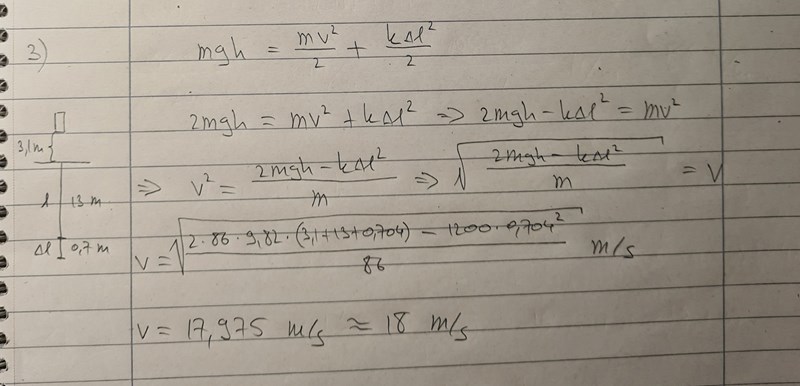 3)
mgh = mv²/2 + kΔl²/2
2mgh = mv² + kΔl² => 2mgh - kΔl² = mv²
=> v² = (2mgh - kΔl²)/m => √((2mgh - kΔl²)/m) = v
3,1m
l 13 m
Δl 0,7 m
v = √((2·86·9,82·(3,1+13+0,704) - 1200·0,704²)/86) m/s
v = 17,975 m/s ≈ 18 m/s